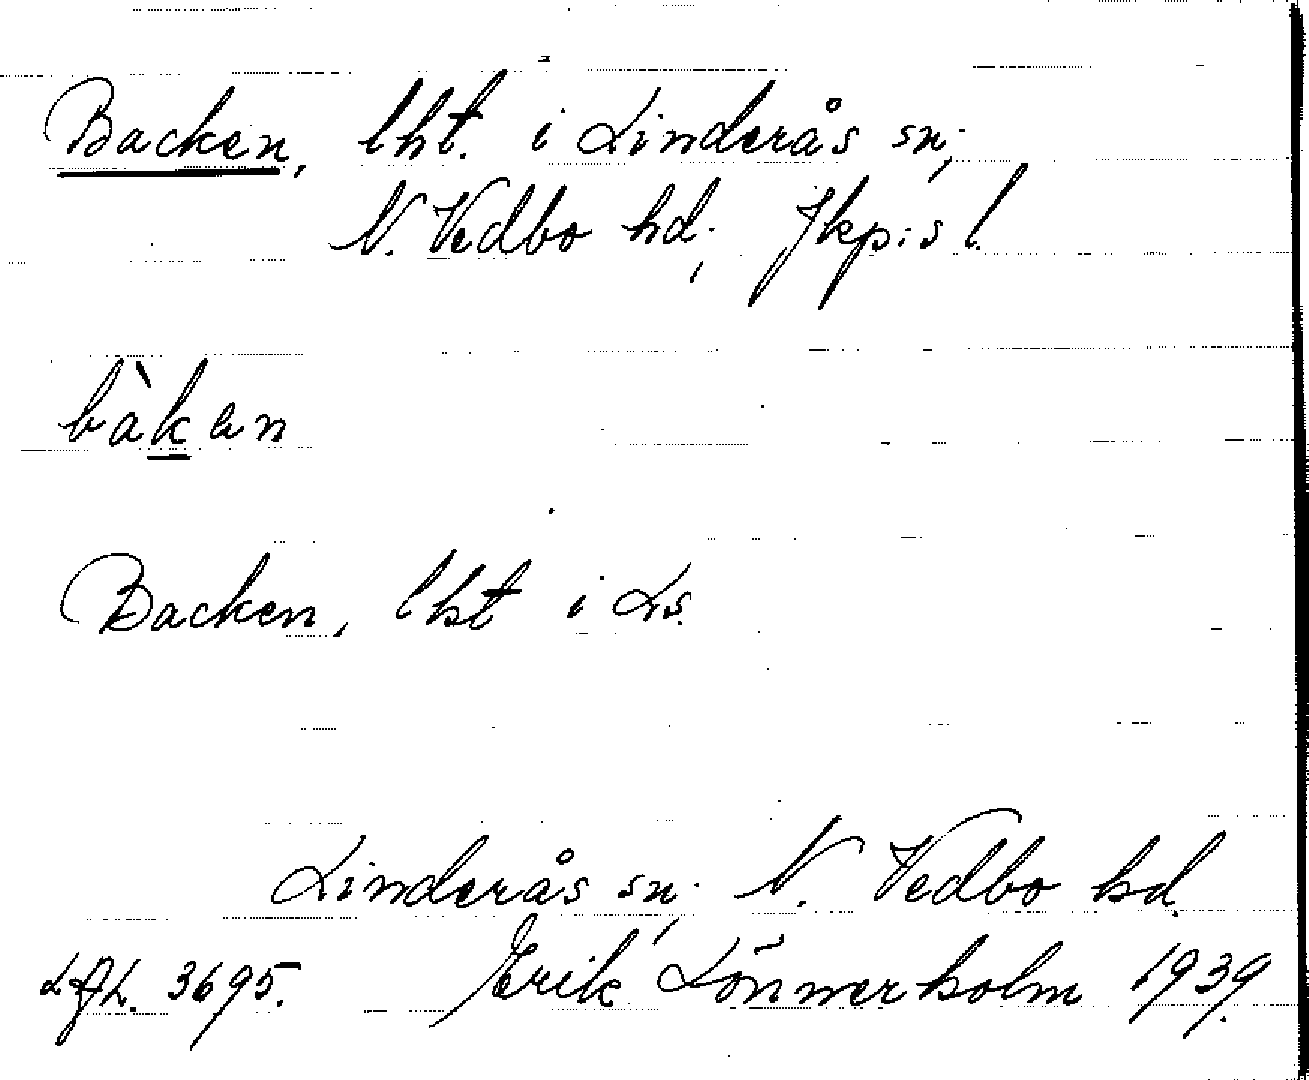 Backen, lht. i Linderås sn.,
N. Vedbo hd., Jkp:s l.
bàkan
Backen, lht i Ls.
Linderås sn., N. Vedbo hd.
3695. Erik Lönnerholm 1939.